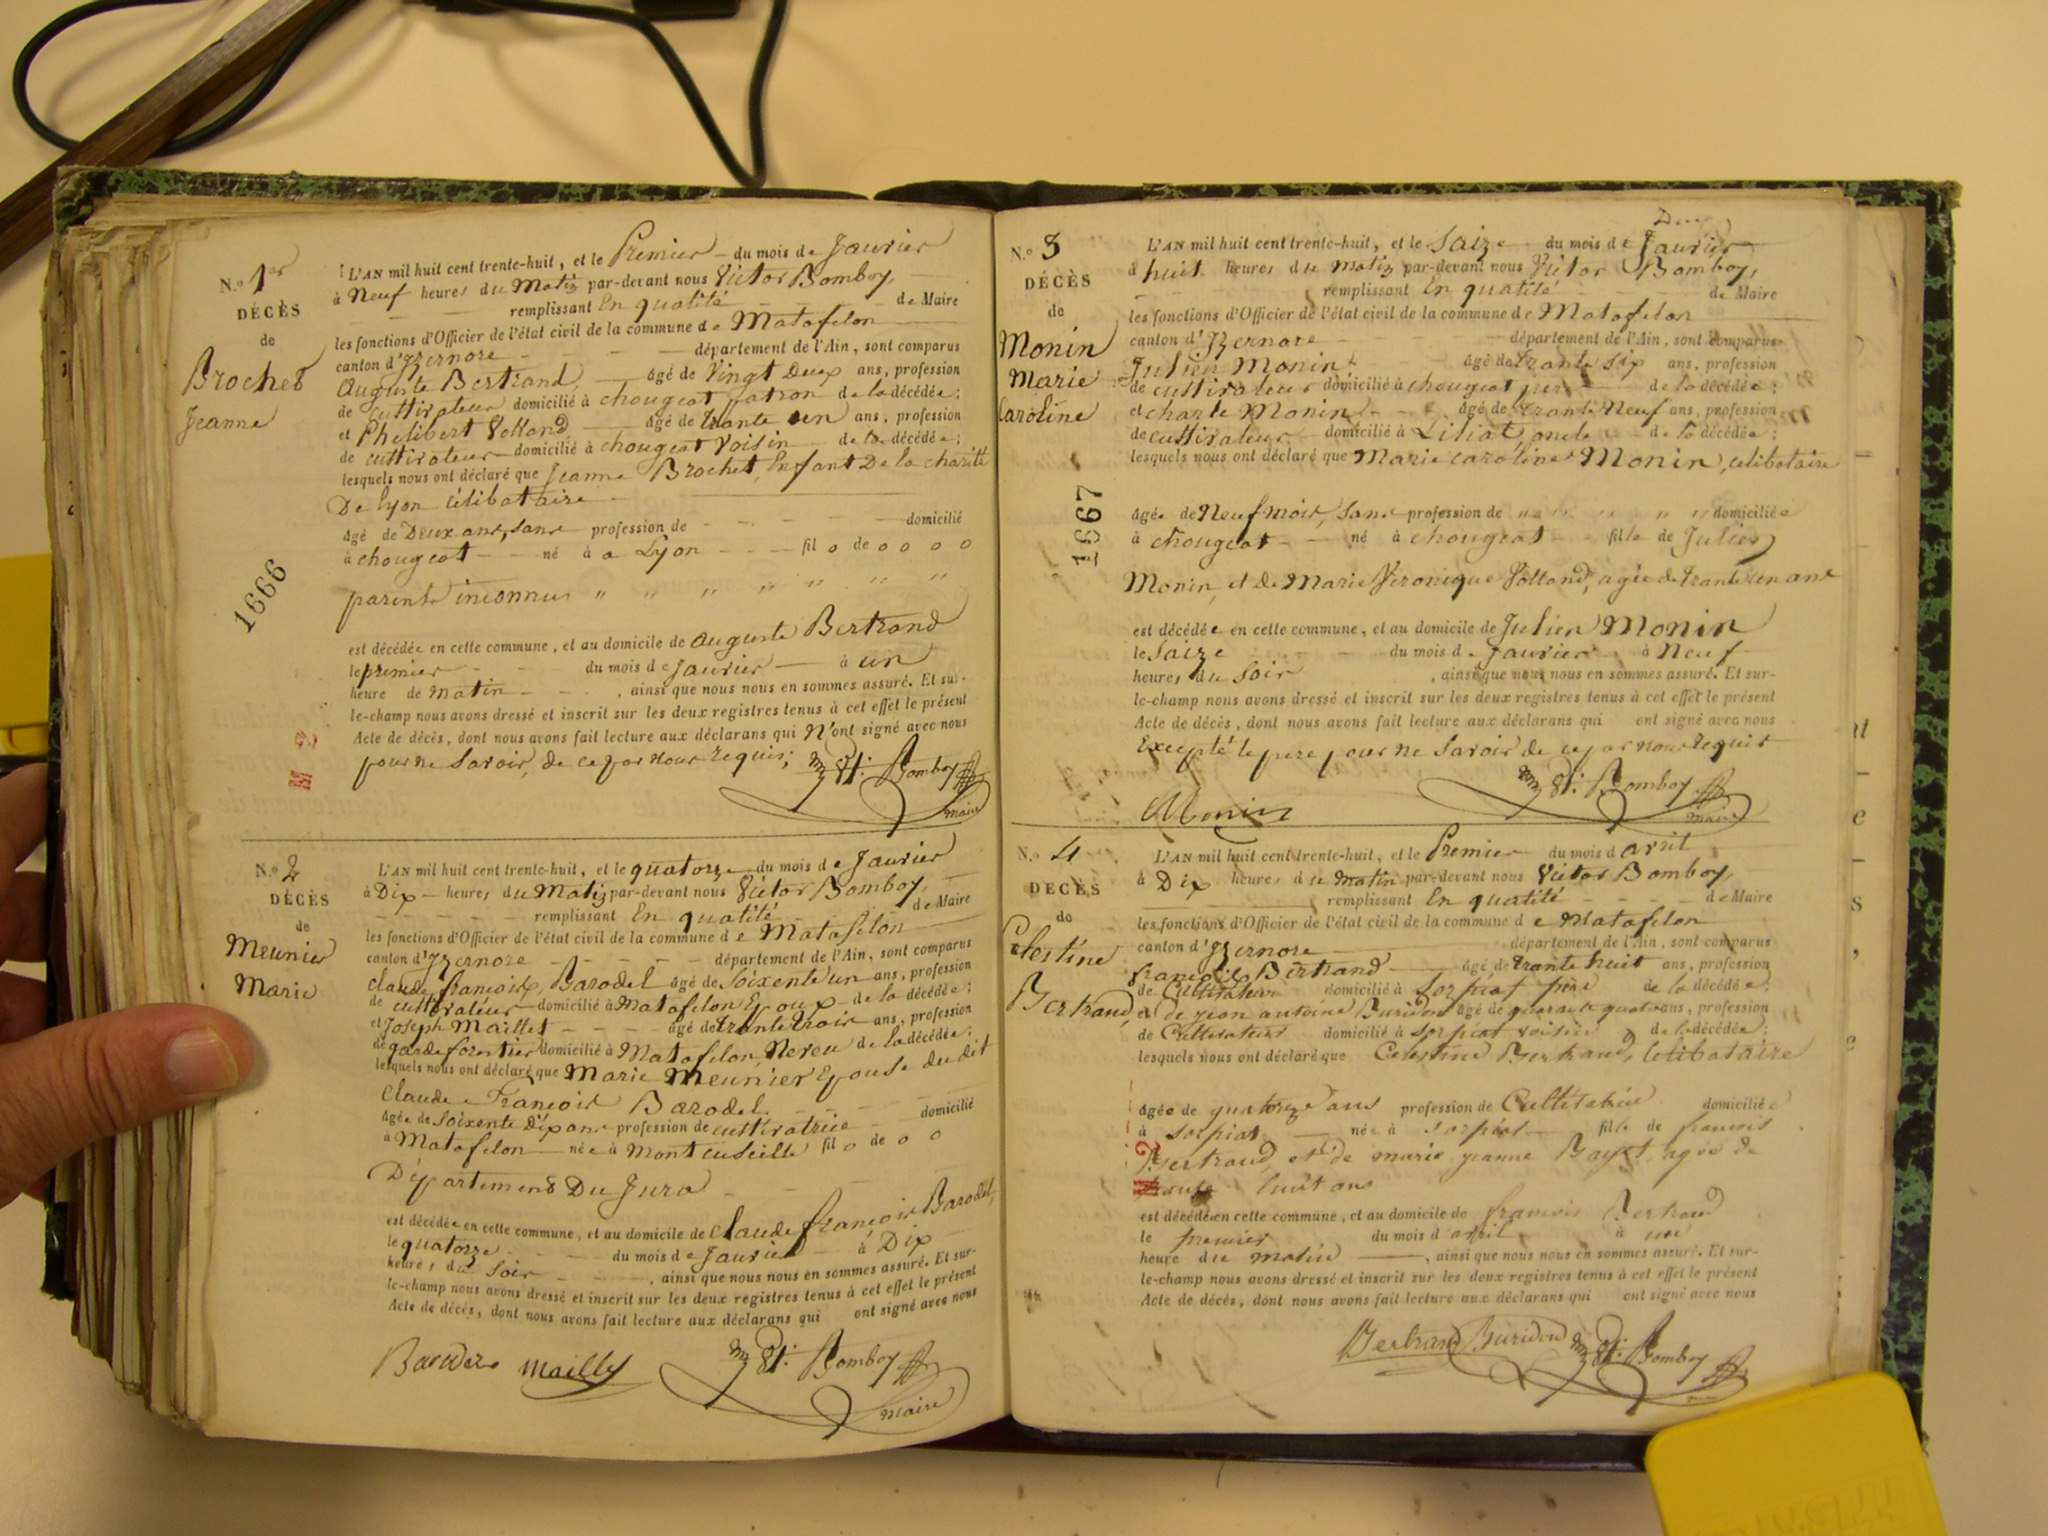 N.o 1er
DÉCÈS
de
Brochet
Jeanne
1666
L'AN mil huit cent trente-huit, et le Premier du mois de Janvier
à Neuf heures du Matin par-devant nous Victor Bomboy,
remplissant En qualité de Maire
les fonctions d'Officier de l'état civil de la commune de Matafelon
canton d'Izernore département de l'Ain, sont comparus
Auguste Bertrand, âgé de Vingt Deux ans, profession
de cultivateur domicilié à chougeat patron de la décédée;
et Philibert Volland âgé de trante un ans, profession
de cultivateur domicilié à chougeat Voisin de la décédée;
lesquels nous ont déclaré que Jeanne Brochet, Enfant De la charité
De lyon Célibataire
âgé de Deux ans, sans profession de domicilié
à chougeat né à a Lyon fil o de o o o o
parents inconnus " " " " " " "
est décédée en cette commune, et au domicile de Auguste Bertrand
le premier du mois de Janvier à un
heure de matin, ainsi que nous nous en sommes assuré. Et sur-
le-champ nous avons dressé et inscrit sur les deux registres tenus à cet effet le présent
Acte de décès, dont nous avons fait lecture aux déclarans qui N'ont signé avec nous
pour ne Savoir, de ce par nous requis;
Vt. Bomboy
maire
N.o 2
DÉCÈS
de
Meunier
Marie
L'AN mil huit cent trente-huit, et le quatorze du mois de Janvier
à Dix heures du Matin par-devant nous Victor Bomboy,
remplissant En qualité de Maire
les fonctions d'Officier de l'état civil de la commune de Matafelon
canton d'Izernore département de l'Ain, sont comparus
Claude françois Barodel âgé de Soixente un ans, profession
de cultivateur domicilié à Matafelon Epoux de la décédée;
et Joseph Maillet âgé de trante trois ans, profession
de garde forestier domicilié à Matafelon Neveu de la décédée;
lesquels nous ont déclaré que Marie Meunier Epouse du dit
Claude François Barodel
âgée de Soixente Dix ans profession de cultivatrice domicilié
à Matafelon née à Montcuseille fil o de o o
Département Du Jura
est décédée en cette commune, et au domicile de Claude françois Barodel,
le quatorze du mois de Janvier à Dix
heures du soir, ainsi que nous nous en sommes assuré. Et sur-
le-champ nous avons dressé et inscrit sur les deux registres tenus à cet effet le présent
Acte de décès, dont nous avons fait lecture aux déclarans qui ont signé avec nous
Maillet Vt. Bomboy
maire
N.o 3
DÉCÈS
de
Monin
Marie
Caroline
1667
L'AN mil huit cent trente-huit, et le Saize du mois de Janvier
à huit heures du matin par-devant nous Victor Bomboy,
remplissant En qualité de Maire
les fonctions d'Officier de l'état civil de la commune de Matafelon
canton d'Izernore département de l'Ain, sont comparus
Julien Monin âgé de trante six ans, profession
de cultivateur domicilié à chougeat pere de la décédée;
et charle Monin âgé de trante Neuf ans, profession
de cultivateur domicilié à Liliat, oncle de la décédée;
lesquels nous ont déclaré que Marie caroline Monin, celibataire
âgée de Neuf mois, Sans profession de " " " " " domiciliée
à chougeat né à chougeat fille de Julien
Monin, et de Marie Veronique Volland, agée de trante un ans
est décédée en cette commune, et au domicile de Julien Monin
le Saize du mois de Janvier à Neuf
heures du Soir, ainsi que nous nous en sommes assuré. Et sur-
le-champ nous avons dressé et inscrit sur les deux registres tenus à cet effet le présent
Acte de décès, dont nous avons fait lecture aux déclarans qui ont signé avec nous
Excepté le pere pour ne Savoir de ce par nous requis
Vt. Bomboy
Monin maire
N.o 4
DÉCÈS
de
Celestine
Bertrand
L'AN mil huit cent trente-huit, et le Premier du mois d avril
à Dix heures du matin par-devant nous Victor Bomboy,
remplissant En qualité de Maire
les fonctions d'Officier de l'état civil de la commune de Matafelon
canton d'Izernore département de l'Ain, sont comparus
françois Bertrand âgé de trante huit ans, profession
de Cultivateur domicilié à Sorpiat père de la décédée;
et de jean antoine Buridon âgé de quarante quatre ans, profession
de Cultivateur domicilié à Sorpiat voisin de la décédée;
lesquels nous ont déclaré que Celestine Bertrand, Celibataire
âgée de quatorze ans profession de Cultivatrice domiciliée
à Sorpiat née à Sorpiat fille de francois
Bertrand, et de marie jeanne Bayet, agée de
trante huit ans
est décédée en cette commune, et au domicile de francois Bertrand
le premier du mois d avril à une
heure du matin, ainsi que nous nous en sommes assuré. Et sur-
le-champ nous avons dressé et inscrit sur les deux registres tenus à cet effet le présent
Acte de décès, dont nous avons fait lecture aux déclarans qui ont signé avec nous
Bertrand Buridon Vt. Bomboy